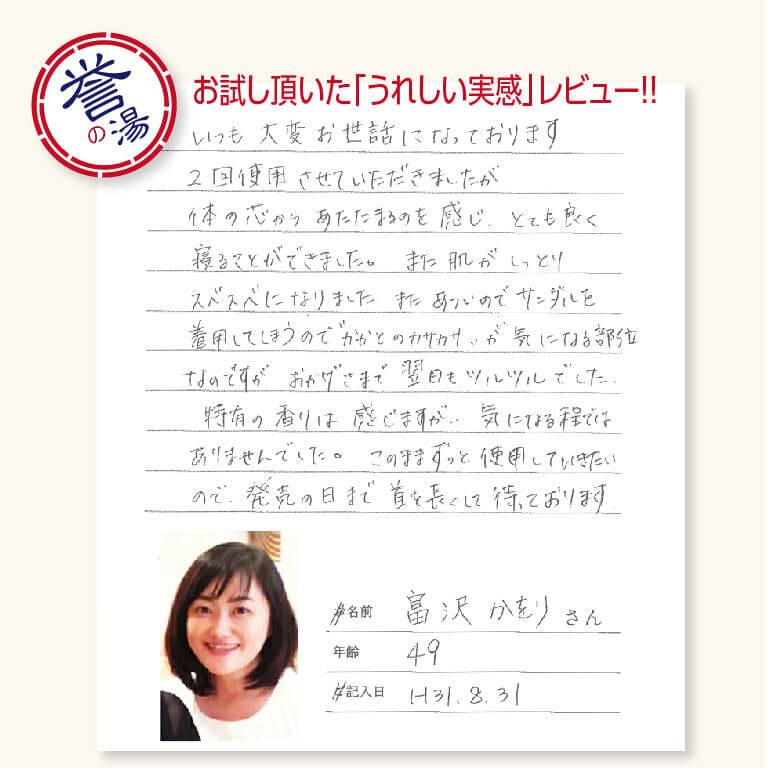 誉の湯
お試し頂いた「うれしい実感」レビュー!!
いつも 大変お世話になっております
2回使用させていただきましたが
体の芯から あたたまるのを感じ、とても良く
寝ることができました。また肌がしっとり
スベスベになりました また あついので サンダルを
着用してしまうので"かかとのカサカサ"が気になる部位
なのですが おかげさまで 翌日もツルツルでした。
特有の香りは感じますが、気になる程では
ありませんでした。このままずっと使用していきたい
ので、発売の日まで首を長くして待っております
お名前 富沢 かをり さん
年齢 49
お記入日 H31.8.31